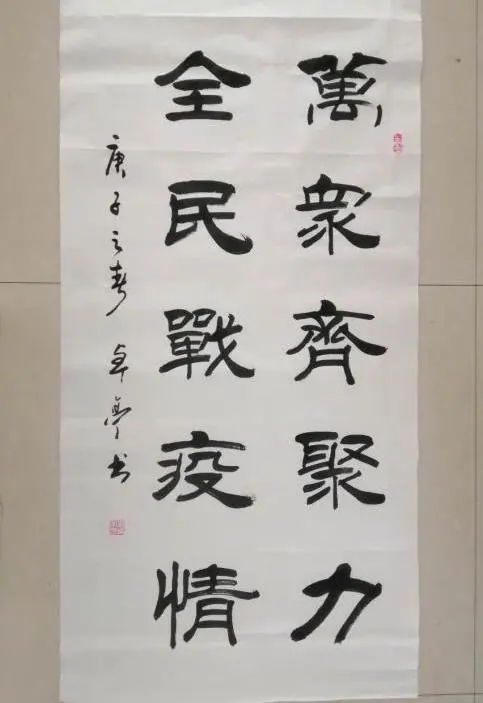 萬衆齊聚力
全民戰疫情
庚子之春 卓亭书